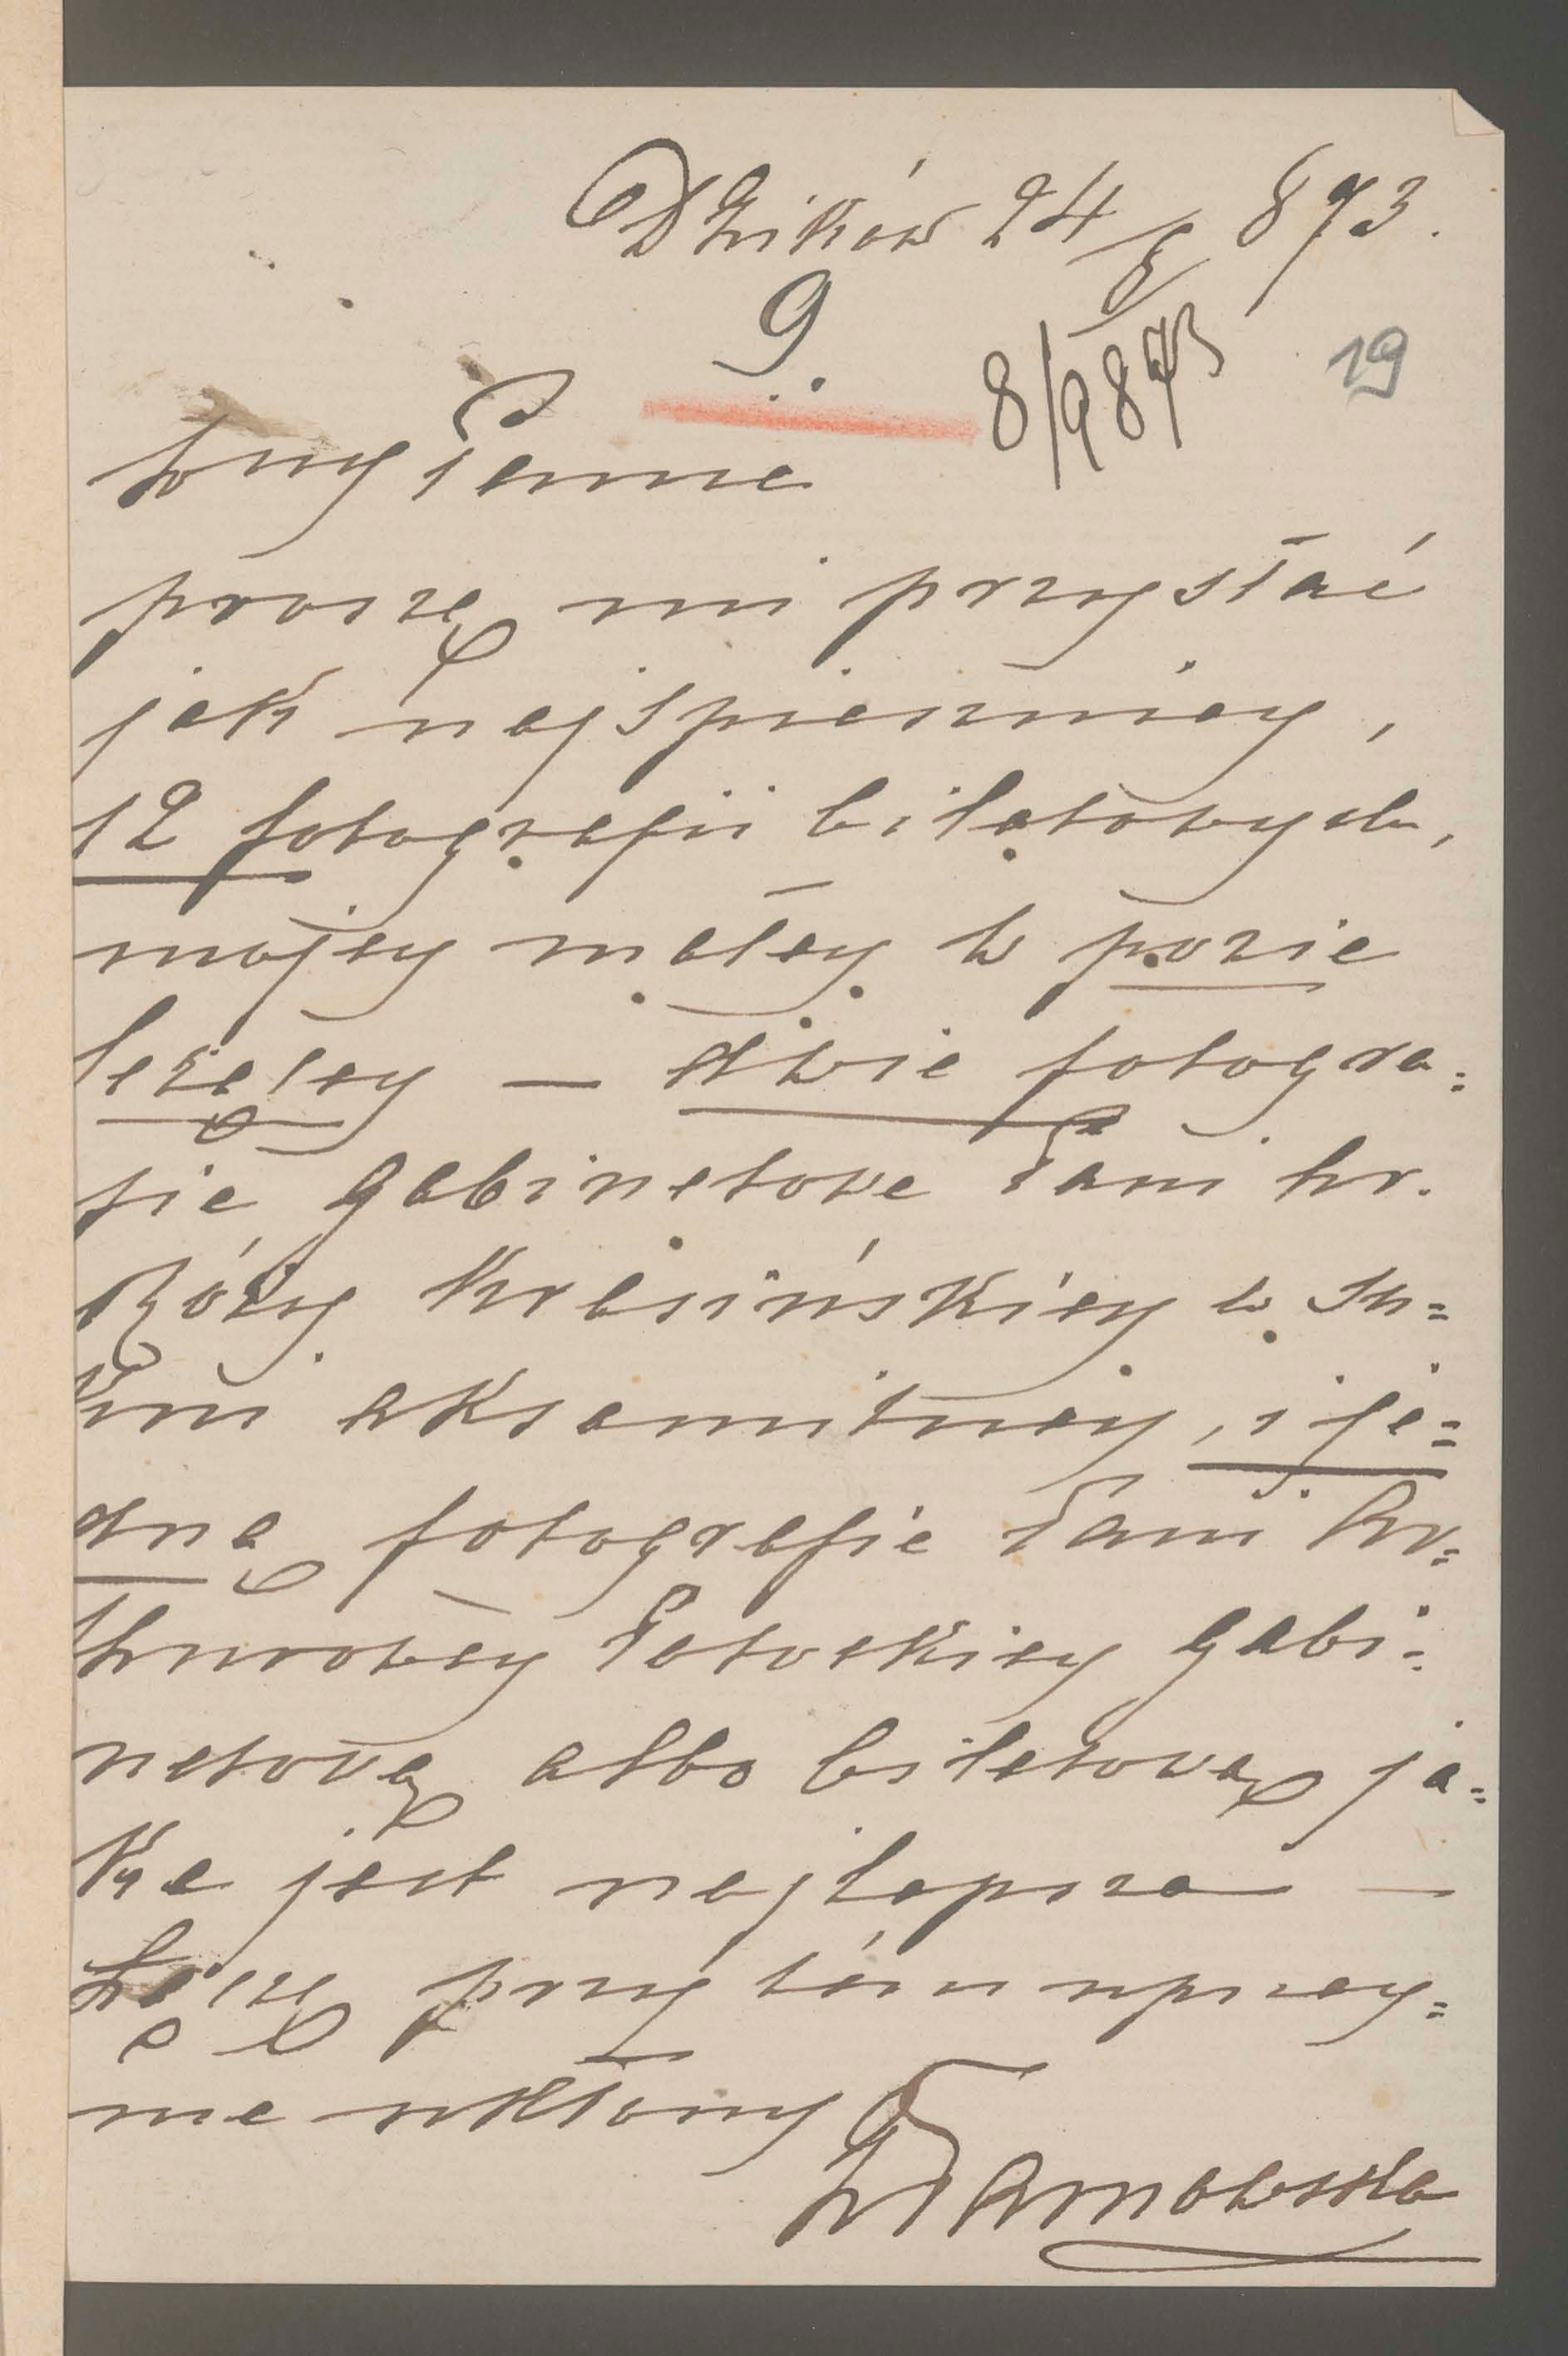 Dzików 24/8 873.
9
8/9 873
19
Panno
proszę mi przysłać
jak najspieszniey,
12 fotografii biletowych,
mojey małey w pozie
leżącey — dwie fotogra=
fie gabinetowe Pani hr.
Róży Krasińskiey w su=
kni aksamitney, i je=
dną fotografie Pani Ar=
thurowey Potockiey gabi=
netową albo biletową ja=
ka jest najlepsza —
Łączę przy tém uprzey=
me ukłony
Tarnowska